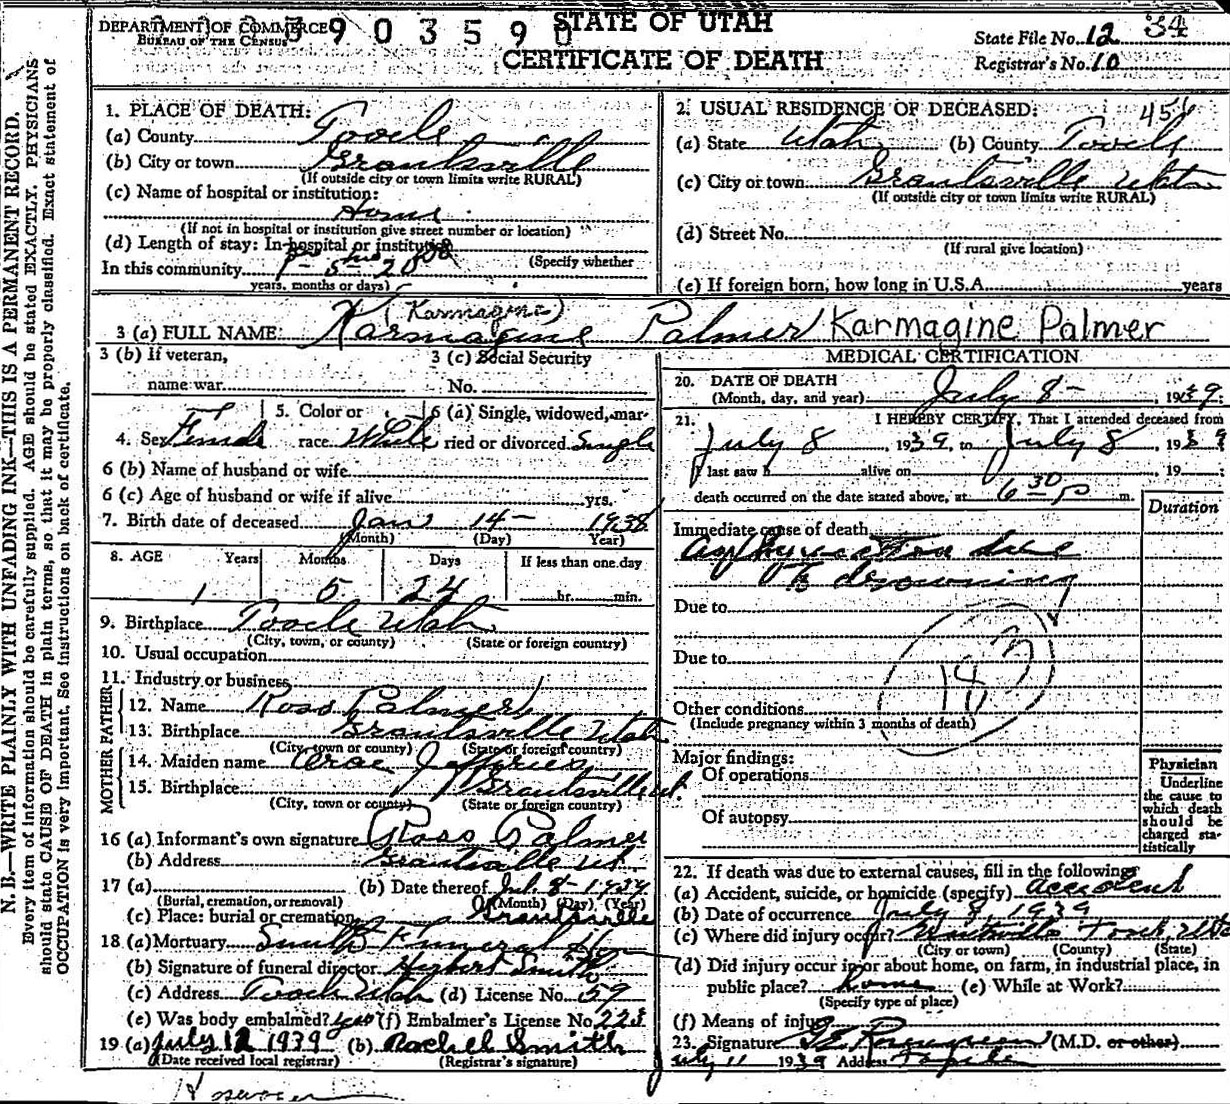 N. B.—WRITE PLAINLY WITH UNFADING INK—THIS IS A PERMANENT RECORD.
Every item of information should be carefully supplied. AGE should be stated EXACTLY. PHYSICIANS
should state CAUSE OF DEATH in plain terms, so that it may be properly classified. Exact statement of
OCCUPATION is very important. See instructions on back of certificate.
DEPARTMENT OF COMMERCE
BUREAU OF THE CENSUS
3903590
STATE OF UTAH
CERTIFICATE OF DEATH
State File No. 12 34
Registrar's No. 10
1. PLACE OF DEATH:
(a) County Tooele
(b) City or town Grantsville
(If outside city or town limits write RURAL)
(c) Name of hospital or institution:
Home
(If not in hospital or institution give street number or location)
(d) Length of stay: In hospital or institution
(Specify whether
In this community 1- 5- 20
years, months or days)
2. USUAL RESIDENCE OF DECEASED: 456
(a) State Utah (b) County Tooele
(c) City or town Grantsville Utah
(If outside city or town limits write RURAL)
(d) Street No.
(If rural give location)
(e) If foreign born, how long in U.S.A. years
(Karmagine)
3 (a) FULL NAME: Karmagine Palmer / Karmagine Palmer
3 (b) If veteran,
name war
3 (c) Social Security
No.
4. Sex Female
5. Color or race White
6 (a) Single, widowed, married or divorced Single
6 (b) Name of husband or wife
6 (c) Age of husband or wife if alive yrs.
7. Birth date of deceased Jan 14- 1938
(Month) (Day) Year)
8. AGE Years Months Days If less than one day
1 5 24 hr. min.
9. Birthplace Tooele Utah
(City, town, or county) (State or foreign country)
10. Usual occupation
11. Industry or business
FATHER
12. Name Ross Palmer
13. Birthplace Grantsville Utah
(City, town or county) (State or foreign country)
MOTHER
14. Maiden name Jefferies
15. Birthplace Grantsville Ut.
(City, town or county) (State or foreign country)
16 (a) Informant's own signature Ross Palmer
(b) Address Grantsville Ut
17 (a) (b) Date thereof Jul. 8- 1939
(Burial, cremation, or removal) (Month) (Day), (Year)
(c) Place: burial or cremation Grantsville
18 (a) Mortuary Smith Funeral Home
(b) Signature of funeral director Herbert Smith
(c) Address Tooele Utah (d) License No. 59
(e) Was body embalmed? yes (f) Embalmer's License No. 223
19 (a) July 12 1939 (b) Rachel Smith
(Date received local registrar) (Registrar's signature)
MEDICAL CERTIFICATION
20. DATE OF DEATH
(Month, day, and year) July 8- , 1939;
21. I HEREBY CERTIFY, That I attended deceased from
July 8, 1939, to July 8, 1939
I last saw h alive on , 19 ;
death occurred on the date stated above, at 6 30 P m.
Duration
Immediate cause of death
Asphyxiation due
to drowning
Due to
183
Due to
Other conditions
(Include pregnancy within 3 months of death)
Major findings:
Of operations
Of autopsy
Physician
Underline
the cause to
which death
should be
charged sta-
tistically
22. If death was due to external causes, fill in the following:
(a) Accident, suicide, or homicide (specify) accident
(b) Date of occurrence July 8, 1939
(c) Where did injury occur? Grantsville Tooele Utah
(City or town) (County) (State)
(d) Did injury occur in or about home, on farm, in industrial place, in
public place? home (e) While at Work?
(Specify type of place)
(f) Means of injury
23. Signature (M.D. or other)
July 11 1939 Address Tooele